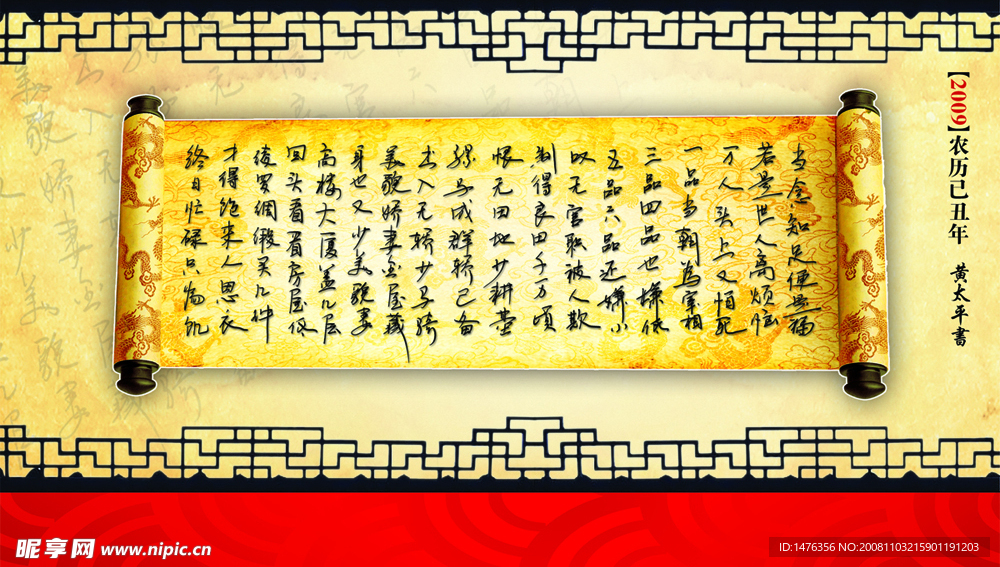 终日忙碌只為饥
才得饱来人思衣
绫罗绸缎买几件
回头看看房屋低
高楼大厦盖几层
身也又少美貌妻
美貌娇妻金屋藏
出入无轿少马骑
骡马成群轿已备
恨无田地少耕基
制得良田千万顷
叹无官职被人欺
五品六品还嫌小
三品四品也嫌低
一品当朝為宰相
万人头上又怕死
若是世人离烦恼
当念知足便是福
【2009】农历己丑年 黄太平書
昵享网 www.nipic.cn
ID:1476356 NO:20081103215901191203